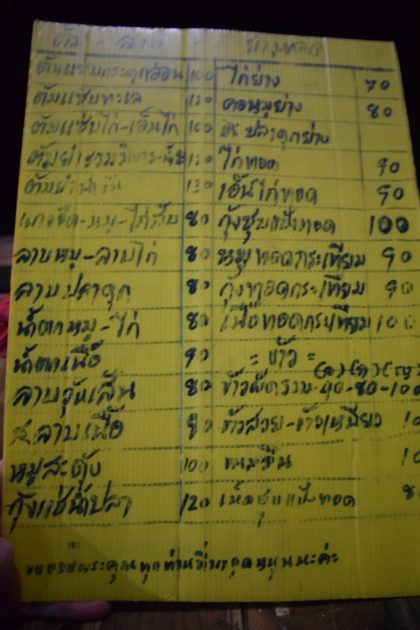 ต้ม - ลาบ
ย่าง-ทอด
ต้มแซ่บกระดูกอ่อน 100
ต้มแซ่บทะเล 120
ต้มแซ่บไก่-เอ็นไก่ 100
ต้มยำรวมมิตร-
ต้มยำ 130
แกงจืด-หมู-ไก่สับ 80
ลาบหมู-ลาบไก่ 80
ลาบปลาดุก 80
น้ำตกหมู-ไก่ 80
น้ำตกเนื้อ 90
ลาบวุ้นเส้น 80
ลาบเนื้อ 90
หมูสะดุ้ง 100
กุ้งแช่น้ำปลา 120
ไก่ย่าง 70
คอหมูย่าง 80
ปลาดุกย่าง
ไก่ทอด 90
เอ็นไก่ทอด 90
กุ้งชุบแป้งทอด 100
หมูทอดกระเทียม 90
กุ้งทอดกระเทียม 90
เนื้อทอดกระเทียม 100
= ข้าว =
ข้าวผัดรวม-40-80-100
ข้าวสวย-ข้าวเหนียว 10
ขนมจีน 10
เห็ดชุบแป้งทอด 8
ขอขอบพระคุณทุกท่านที่มาอุดหนุนนะค่ะ